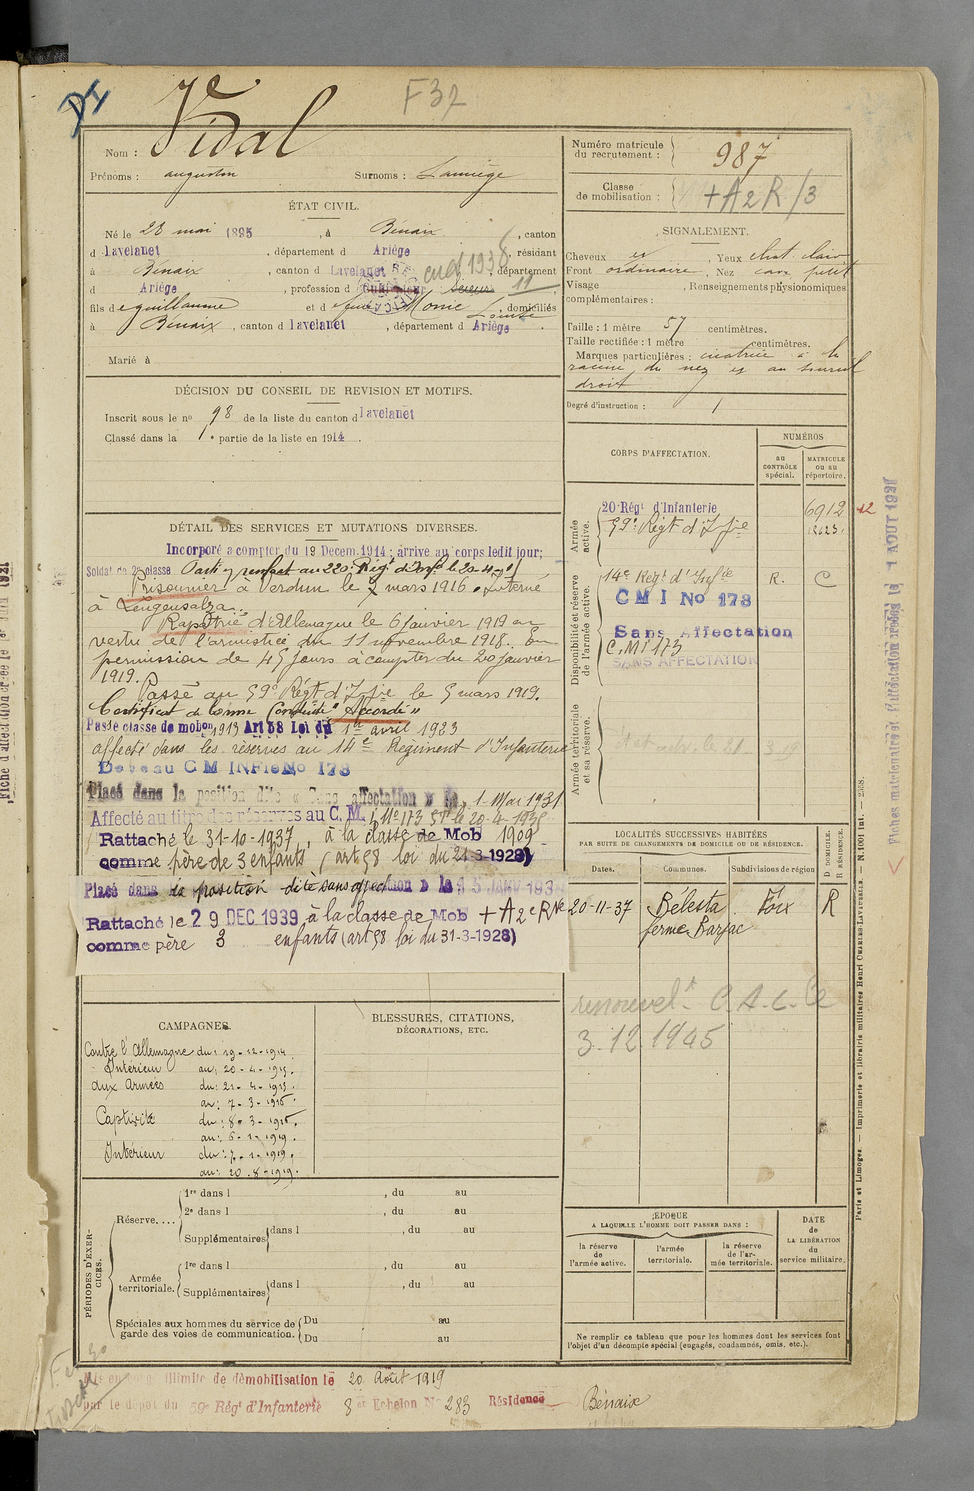 F 37
Nom : Vidal
Prénoms : augustin Surnoms :
Numéro matricule
du recrutement : 987
Classe
de mobilisation : +A2R/3
ÉTAT CIVIL.
Né le 28 mai 1895, à Bénaix, canton
d Lavelanet, département d Ariège, résidant
à Bénaix, canton d Lavelanet, département
d Ariège, profession d cult 1938 11
fils de guillaume et de feue Monié Louise, domiciliés
à Bénaix, canton d Lavelanet, département d Ariège.
Marié à
SIGNALEMENT.
Cheveux , Yeux chat. clair
Front ordinaire, Nez cave petit
Visage , Renseignements physionomiques
complémentaires :
Taille : 1 mètre 57 centimètres.
Taille rectifiée : 1 mètre centimètres.
Marques particulières : cicatrice à la
racine du nez et au sourcil
droit
Degré d'instruction : 1
DÉCISION DU CONSEIL DE REVISION ET MOTIFS.
Inscrit sous le no 98 de la liste du canton d Lavelanet
Classé dans la 1e partie de la liste en 1914.
DÉTAIL DES SERVICES ET MUTATIONS DIVERSES.
Incorporé a compter du 19 Decem.1914 ; arrive au corps ledit jour;
Soldat de 2e classe Parti en renfort au 220e Régt d'Infie le 20-4-15
Prisonnier à Verdun le 7 mars 1916. Interné
à Lengensalza.
Rapatrié d'Allemagne le 6 janvier 1919 en
vertu de l'armistice du 11 novembre 1918. En
permission de 45 jours à compter du 20 janvier
1919.
Passé au 59e Régt d'Infie le 5 mars 1919.
Certificat de bonne Conduite "Accordé"
Passé classe de mobon 1913 Art 58 Loi du 1er avril 1923
affecté dans les réserves au 14e Régiment d'Infanterie
Deveau C M INFie No 173
Placé dans la position dite « Sans affectation » le 1 Mai 1931
Affecté au titre des réserves au C. M. I. No 173 le 20-4-1935
Rattaché le 31-10-1937, à la classe de Mob 1909
comme père de 3 enfants (art 58 loi du 31-3-1928)
Placé dans la position dite sans affection » le 15 JANV 193
Rattaché le 29 DEC. 1939 à la classe de Mob +A2eRVe
comme père 3 enfants (art 58 loi du 31-3-1928)
CORPS D'AFFECTATION.
NUMÉROS
au
CONTRÔLE
spécial.
MATRICULE
ou au
répertoire.
Armée
active.
20e Régt d'Infanterie 6912
59e Régt d'Infie 12623
Disponibilité et réserve
de l'armée active.
14e Régt d'Infie R. C
C M I No 173
Sans Affectation
C.M.I 173
SANS AFFECTATION
Armée territoriale
et sa réserve.
LOCALITÉS SUCCESSIVES HABITÉES
PAR SUITE DE CHANGEMENTS DE DOMICILE OU DE RÉSIDENCE.
D DOMICILE.
R RÉSIDENCE.
Dates. Communes. Subdivisions de région
20-11-37 Bélesta Foix R
ferme Barjac
renouvelt C.A.C. le
3.12.1945
CAMPAGNES.
Contre l'Allemagne du : 19-12-1914.
Intérieur au : 20-4-1915.
aux Armées du : 21-4-1915.
au : 7-3-1916.
Captivité du : 8-3-1916.
au : 6-1-1919.
Intérieur du : 7-1-1919.
au : 20-8-1919.
BLESSURES, CITATIONS,
DÉCORATIONS, ETC.
PÉRIODES D'EXERCICES.
Réserve....
1re dans l , du au
2e dans l , du au
Supplémentaires dans l , du au
Armée
territoriale.
1re dans l , du au
Supplémentaires dans l , du au
Spéciales aux hommes du service de
garde des voies de communication.
Du au
Du au
ÉPOQUE
A LAQUELLE L'HOMME DOIT PASSER DANS :
la réserve
de
l'armée active.
l'armée
territoriale.
la réserve
de l'ar-
mée territoriale.
DATE
de
LA LIBÉRATION
du
service militaire.
Ne remplir ce tableau que pour les hommes dont les services font
l'objet d'un décompte spécial (engagés, condamnés, omis, etc.).
Mis en congé illimité de démobilisation le 20 Août 1919
par le dépot du 59e Régt d'Infanterie 8e Echelon No 283 Résidence Bénaix
Paris et Limoges. — Imprimerie et librairie militaires Henri CHARLES-LAVAUZELLE. — N. 1001 int. — 2568.
1 AOUT 1921